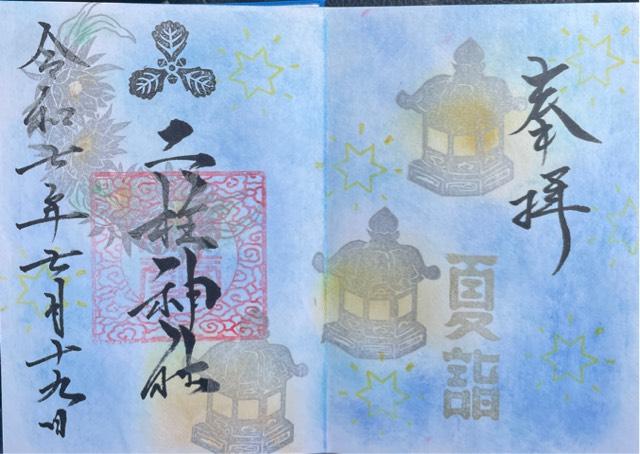 奉拝
夏詣
二柱神社
令和七年七月十九日